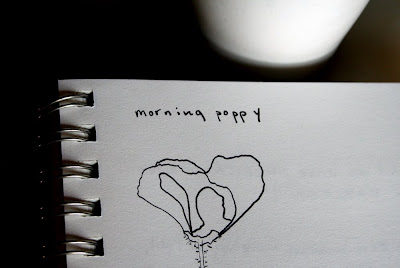 morning poppy